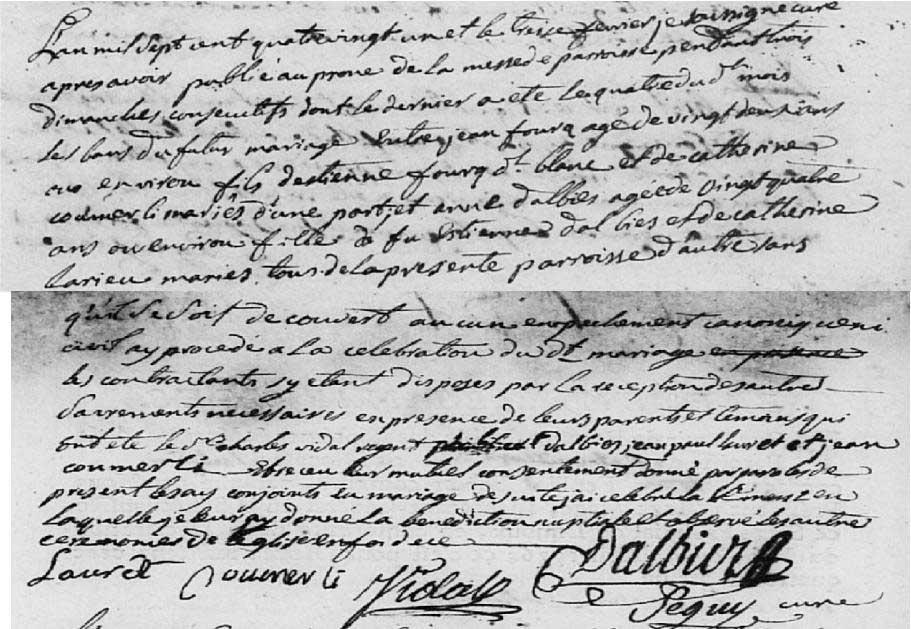 L'an mil sept cent quatre vingt un et le treise fevrier je soussigné curé
apres avoir publié au prone de la messe de parroisse pendant trois
dimanches consecutifs dont le dernier a eté le quatre du dt mois
les bans du futur mariage entre jean fourq agé de vingt deux ans
ou environ fils d'estienne fourq dt blanc et de catherine
coumerli mariés d'une part, et anne dalbies agée de vingt quatre
ans ou environ fille de fu estienne dalbies et de catherine
larieu mariés tous de la presente parroisse d'autre sans
qu'il se soit decouvert aucun enpechement canonique ni
civil ay procedé a la celebration du dt mariage en presence
les contractants s'y etant disposes par la reception des autres
sacrements necessaires en presence de leurs parents et temoins qui
ont eté le sr charles vidal dalbies, jean paul lauret et jean
coumerli et receu leur mutuel consentement donné par paroles de
present les ay conjoints en mariage de suite j'ai celebré la ste messe en
laquelle je leur ay donné la benediction nuptiale et observé les autre
ceremonies de l'eglise en foi de ce
Lauret Coumerli Vidal Dalbies
Peguy curé